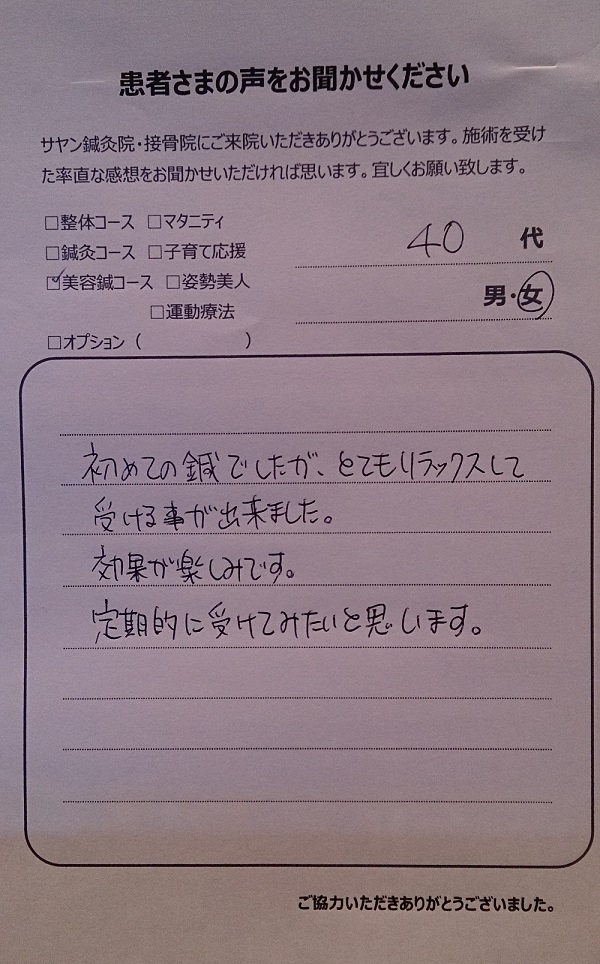 患者さまの声をお聞かせください
サヤン鍼灸院・接骨院にご来院いただきありがとうございます。施術を受け
た率直な感想をお聞かせいただければ思います。宜しくお願い致します。
□整体コース □マタニティ
□鍼灸コース □子育て応援
☑美容鍼コース □姿勢美人
□運動療法
□オプション（ ）
40 代
男・女
初めての鍼でしたが、とてもリラックスして
受ける事が出来ました。
効果が楽しみです。
定期的に受けてみたいと思います。
ご協力いただきありがとうございました。